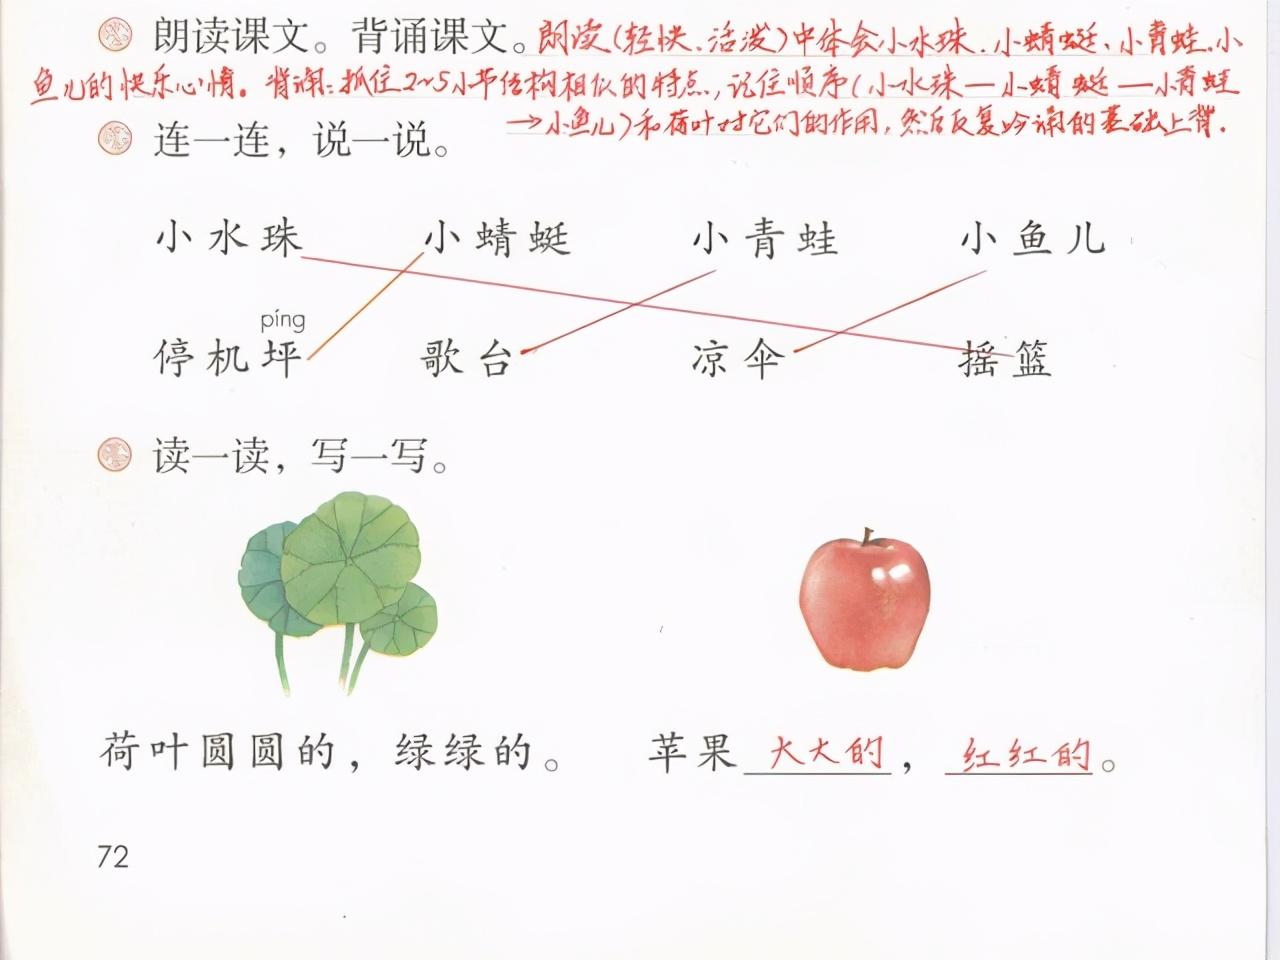 朗读课文。背诵课文。朗读(轻快、活泼)中体会小水珠、小蜻蜓、小青蛙、小
鱼儿的快乐心情。背诵:抓住2~5小节结构相似的特点,记住顺序(小水珠—小蜻蜓—小青蛙
→小鱼儿)和荷叶对它们的作用,然后反复吟诵的基础上背.
连一连,说一说。
小水珠 小蜻蜓 小青蛙 小鱼儿
píng
停机坪 歌台 凉伞 摇篮
读一读,写一写。
荷叶圆圆的,绿绿的。 苹果大大的,红红的。
72